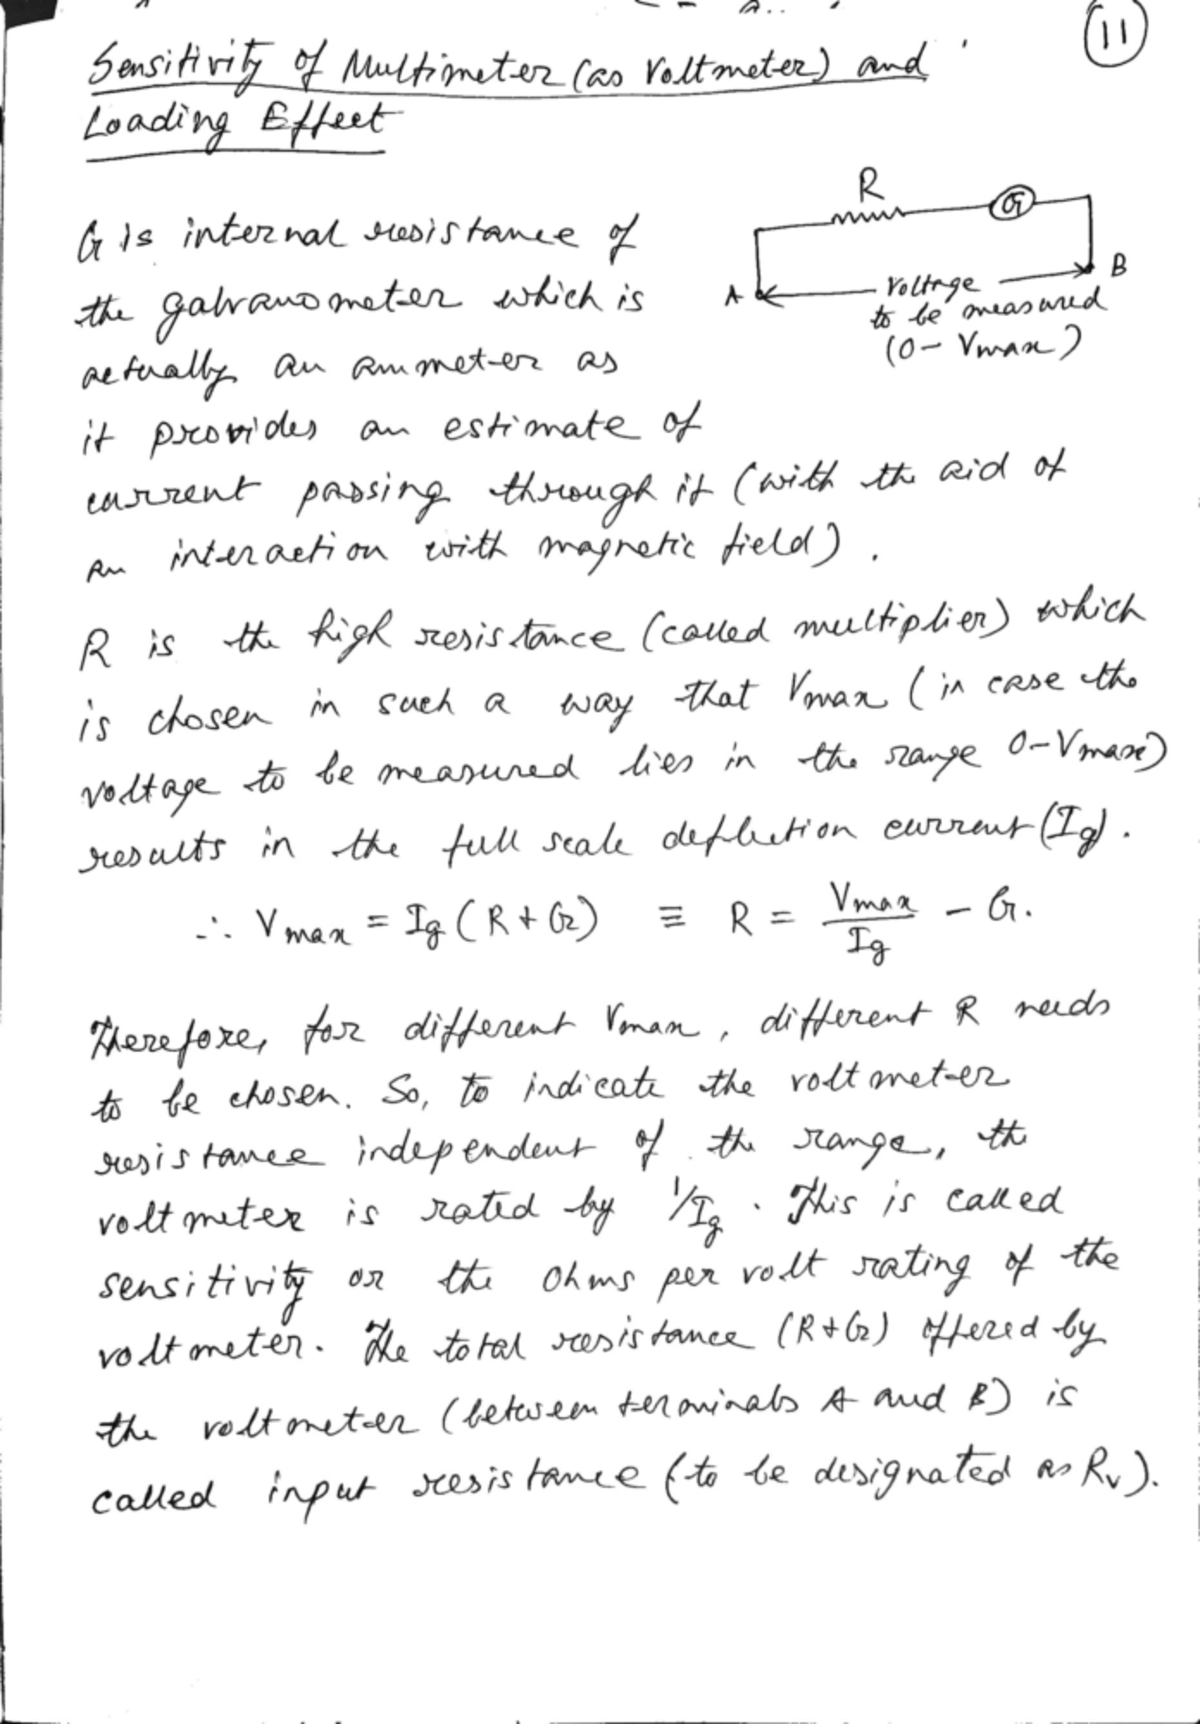 11
Sensitivity of Multimeter (as Voltmeter) and
Loading Effect
R
G
A
B
Voltage
to be measured
(0 - Vmax)
G is internal resistance of
the galvanometer which is
actually an ammeter as
it provides an estimate of
current passing through it (with the aid of
an interaction with magnetic field).
R is the high resistance (called multiplier) which
is chosen in such a way that Vmax (in case the
voltage to be measured lies in the range 0-Vmax)
results in the full scale deflection current (Ig).
∴ Vmax = Ig (R + G) ≡ R = Vmax/Ig - G.
Therefore, for different Vmax, different R needs
to be chosen. So, to indicate the voltmeter
resistance independent of the range, the
voltmeter is rated by 1/Ig. This is called
sensitivity or the Ohms per volt rating of the
voltmeter. The total resistance (R+G) offered by
the voltmeter (between terminals A and B) is
called input resistance (to be designated as Rv).